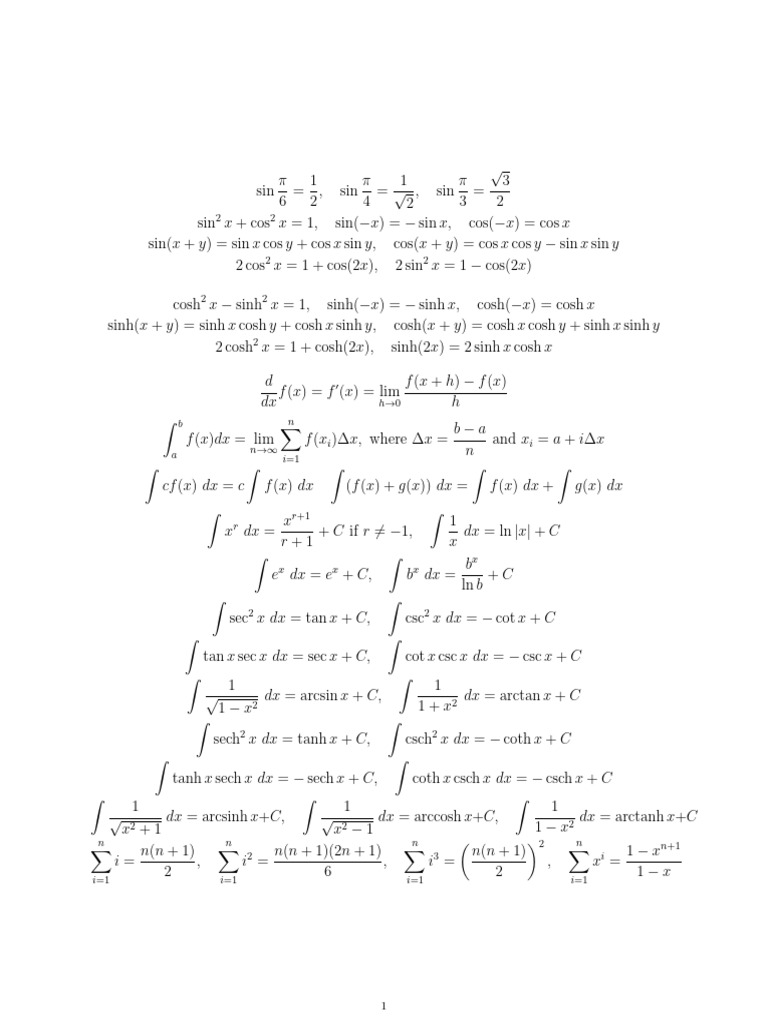 sin π/6 = 1/2, sin π/4 = 1/√2, sin π/3 = √3/2
sin² x + cos² x = 1, sin(−x) = − sin x, cos(−x) = cos x
sin(x + y) = sin x cos y + cos x sin y, cos(x + y) = cos x cos y − sin x sin y
2 cos² x = 1 + cos(2x), 2 sin² x = 1 − cos(2x)
cosh² x − sinh² x = 1, sinh(−x) = − sinh x, cosh(−x) = cosh x
sinh(x + y) = sinh x cosh y + cosh x sinh y, cosh(x + y) = cosh x cosh y + sinh x sinh y
2 cosh² x = 1 + cosh(2x), sinh(2x) = 2 sinh x cosh x
d/dx f(x) = f′(x) = lim_{h→0} (f(x + h) − f(x))/h
∫_a^b f(x)dx = lim_{n→∞} ∑_{i=1}^n f(x_i)Δx, where Δx = (b − a)/n and x_i = a + iΔx
∫ cf(x) dx = c ∫ f(x) dx ∫ (f(x) + g(x)) dx = ∫ f(x) dx + ∫ g(x) dx
∫ x^r dx = x^{r+1}/(r + 1) + C if r ≠ −1, ∫ 1/x dx = ln |x| + C
∫ e^x dx = e^x + C, ∫ b^x dx = b^x/ln b + C
∫ sec² x dx = tan x + C, ∫ csc² x dx = − cot x + C
∫ tan x sec x dx = sec x + C, ∫ cot x csc x dx = − csc x + C
∫ 1/√(1 − x²) dx = arcsin x + C, ∫ 1/(1 + x²) dx = arctan x + C
∫ sech² x dx = tanh x + C, ∫ csch² x dx = − coth x + C
∫ tanh x sech x dx = − sech x + C, ∫ coth x csch x dx = − csch x + C
∫ 1/√(x² + 1) dx = arcsinh x+C, ∫ 1/√(x² − 1) dx = arccosh x+C, ∫ 1/(1 − x²) dx = arctanh x+C
∑_{i=1}^n i = n(n + 1)/2, ∑_{i=1}^n i² = n(n + 1)(2n + 1)/6, ∑_{i=1}^n i³ = (n(n + 1)/2)², ∑_{i=1}^n x^i = (1 − x^{n+1})/(1 − x)
1